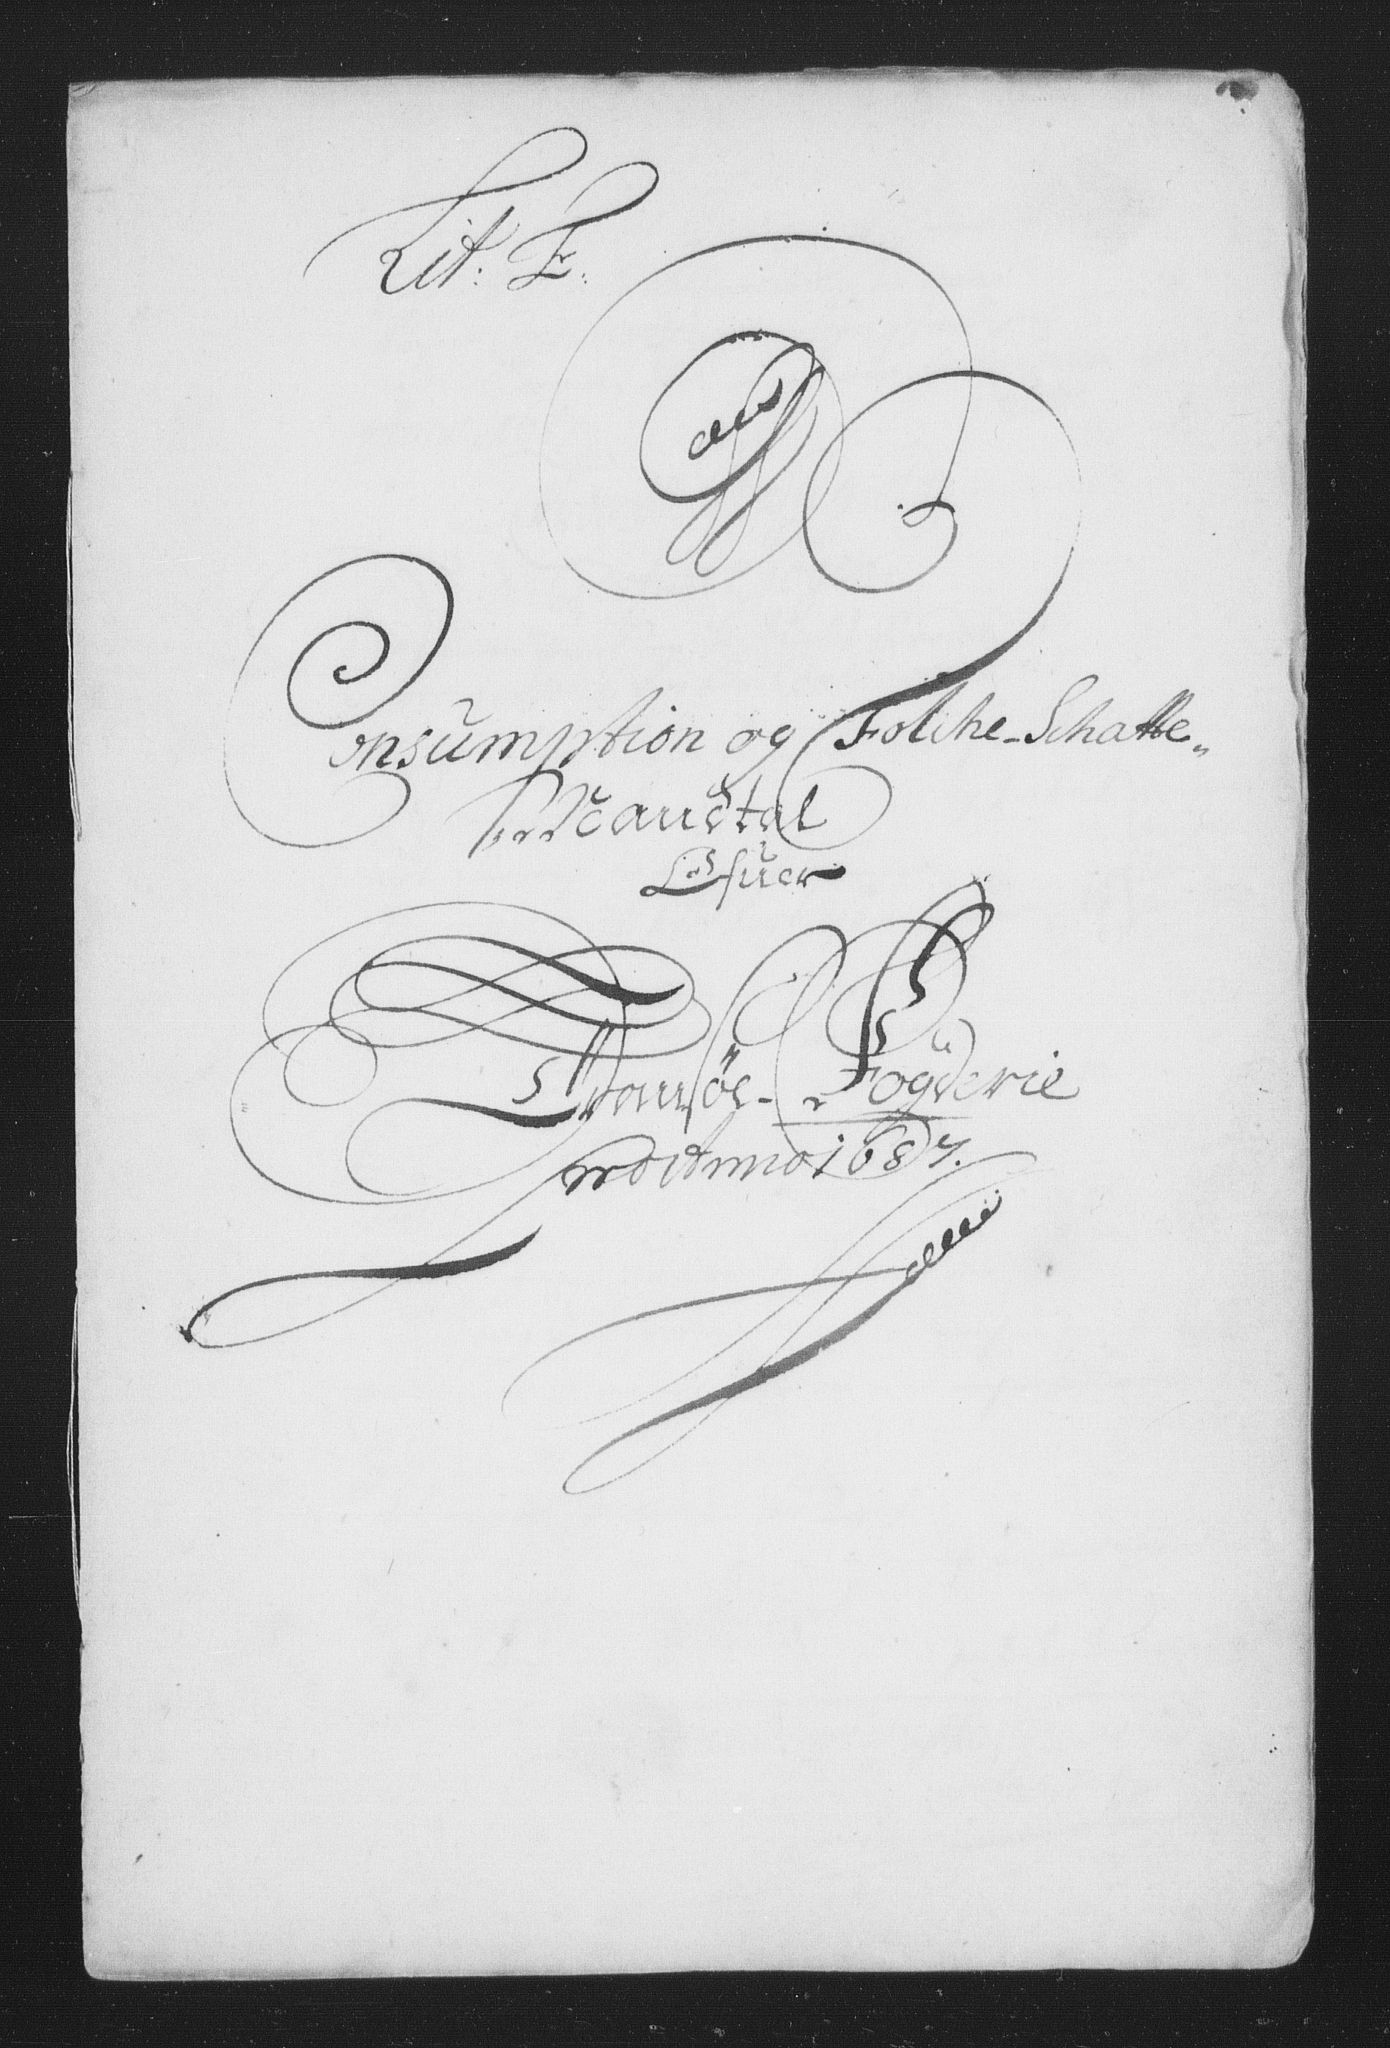 Lit: E.
Consumption og Folche-Schatte-
Mandtal
Ofuer
Tromsøe- Fogderie
Pro Anno 1687.